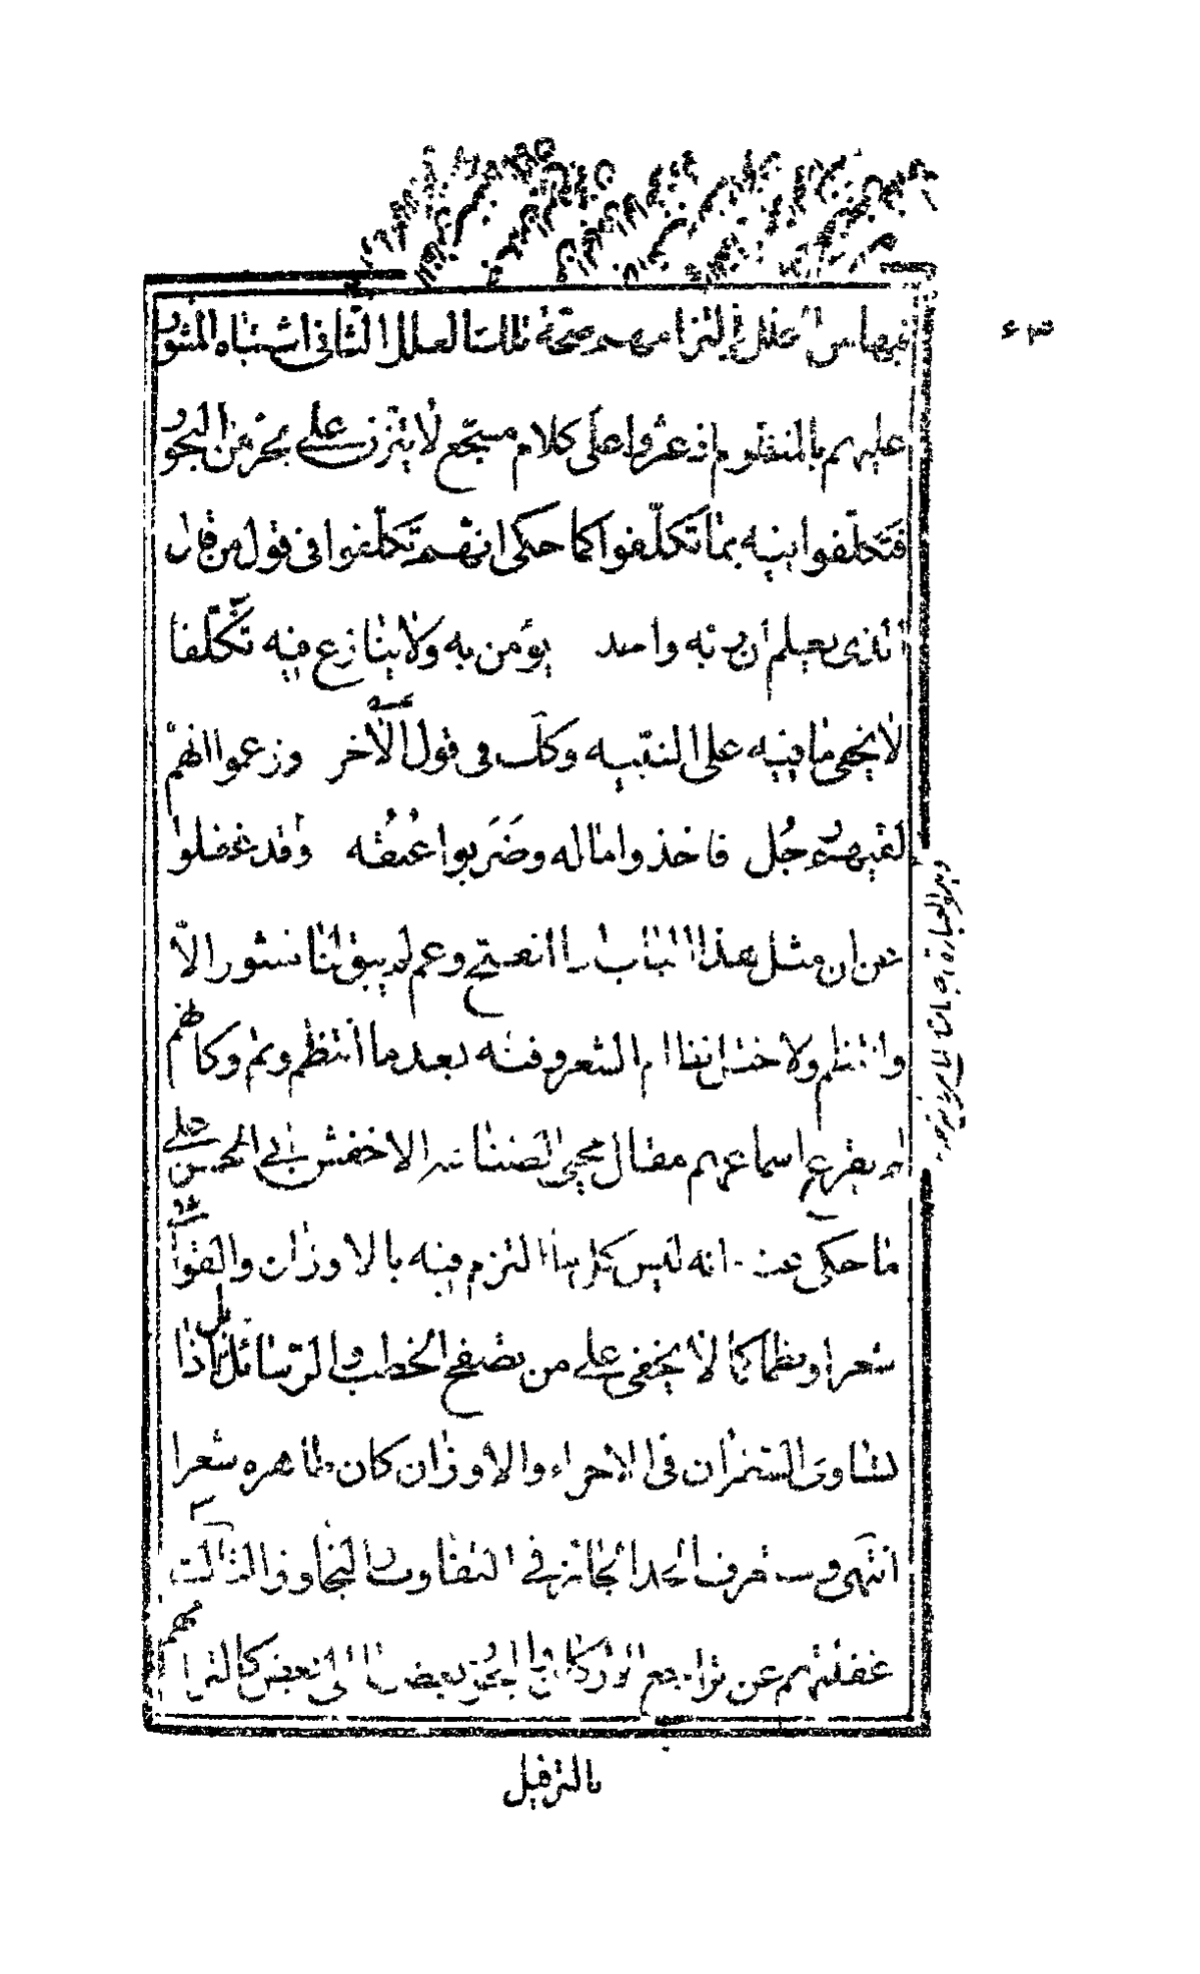 فيها من خلل التزامهم صحة تلك العلل الثانى اشتباه المنثور
عليهم بالمنظوم اذ عثروا على كلام مسجع لا يتزن على بحر من البحور
فتكلفوا فيه بما تكلفوا كما حكى انهم تكلفوا فى قول من قال
الذى يعلم ان ربه واحد يؤمن به ولا ينازع فيه تكلفا
لا يخفى ما فيه على النبيه وكك فى قول الآخر وزعموا انهم
لقيهم رجل فاخذوا ماله وضربوا عنقه وقد غفلوا
عن ان مثل هذا الباب اذا انفتح وعم لم يبق لنا منثور الا
وانتظم ولاختل نظام الشعر وفنه بعد ما انتظم وتم وكانهم
لم يقرع اسماعهم مقال محيى الصناعة الاخفش ابى الحسن على
ما حكى عنه انه ليس كل ما التزم فيه بالاوزان والقوافى
شعرا ونظما كما لا يخفى على من تصفح الخطب والرسائل بل اذا
تساوى الشطران فى الاجزاء والاوزان كان ظاهره شعرا
انتهى وستعرف الحد الجائز فى التفاوت والتجاوز الثالث
غفلتهم عن تراجع الاركان البحر بعضها الى بعض كالتزامهم
بالترفيل
٤٣